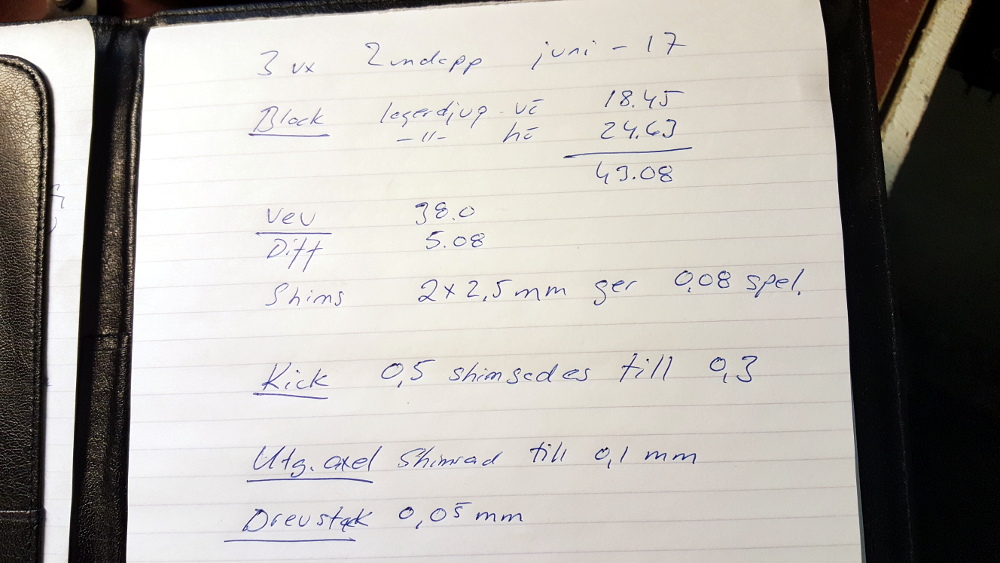 3 vx Zundapp juni - 17
Block lagerdjup vä 18.45
-11- hö 24.63
43.08
Vev 38.0
Diff 5.08
Shims 2x2,5 mm ger 0,08 spel.
Kick 0,5 shimsades till 0,3
Utg. axel Shimsad till 0,1 mm
Drevstak 0,05 mm